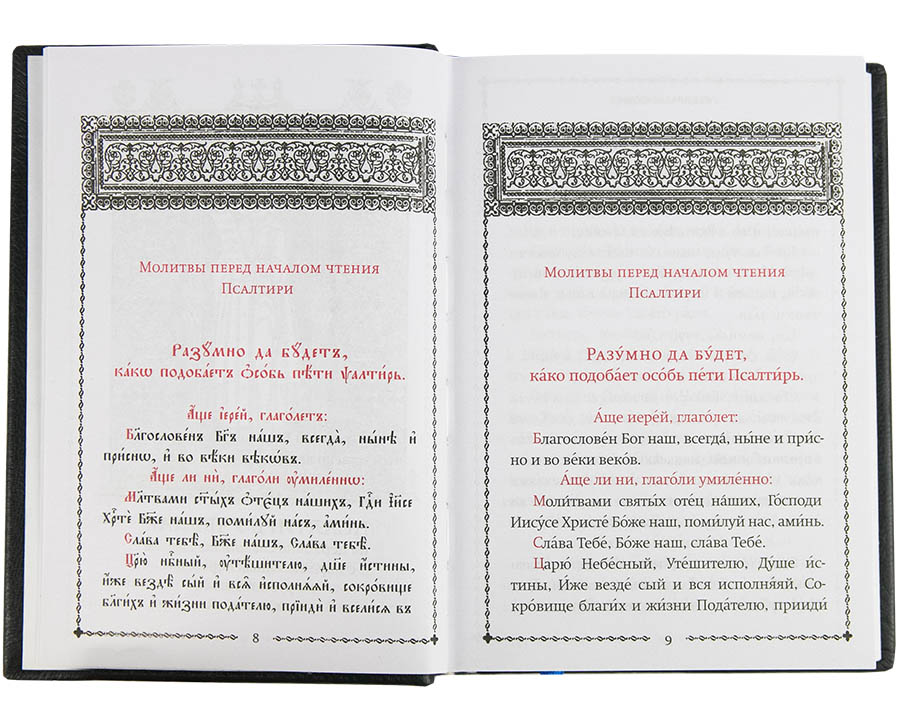 Молитвы перед началом чтения
Псалтири
Разꙋ́мно да бꙋ́детъ,
ка́кѡ подоба́етъ ѻ҆со́бь пѣ́ти ѱалти́рь.
А҆́ще і҆ере́й, глаго́летъ:
Благослове́нъ бг҃ъ на́шъ, всегда̀, ны́нѣ и҆
при́снѡ, и҆ во вѣ́ки вѣкѡ́въ.
А҆́ще ли нѝ, глаго́ли ᲂу҆миле́ннѡ:
Мл҃твами ст҃ы́хъ ѻ҆те́цъ на́шихъ, гдⷭ҇и і҆и҃се
хрⷭ҇тѐ бж҃е на́шъ, поми́лꙋй на́съ, а҆ми́нь.
Сла́ва тебѣ̀, бж҃е на́шъ, Сла́ва тебѣ̀.
Цр҃ю̀ нбⷭ҇ный, ᲂу҆тѣ́шителю, дш҃е и҆́стины,
и҆́же вездѣ̀ сы́й и҆ всѧ̑ и҆сполнѧ́ѧй, сокро́вище
бл҃ги́хъ и҆ жи́зни пода́телю, прїидѝ и҆ всели́сѧ въ
8
Молитвы перед началом чтения
Псалтири
Разу́мно да бу́дет,
ка́ко подоба́ет осо́бь пе́ти Псалти́рь.
А́ще иере́й, глаго́лет:
Благослове́н Бог наш, всегда́, ны́не и при́с-
но и во ве́ки веко́в.
А́ще ли ни, глаго́ли умиле́нно:
Моли́твами святы́х оте́ц на́ших, Го́споди
Иису́се Христе́ Бо́же наш, поми́луй нас, ами́нь.
Сла́ва Тебе́, Бо́же наш, сла́ва Тебе́.
Царю́ Небе́сный, Уте́шителю, Ду́ше и́с-
тины, И́же везде́ сый и вся исполня́яй, Со-
кро́вище благи́х и жи́зни Пода́телю, прииди́
9